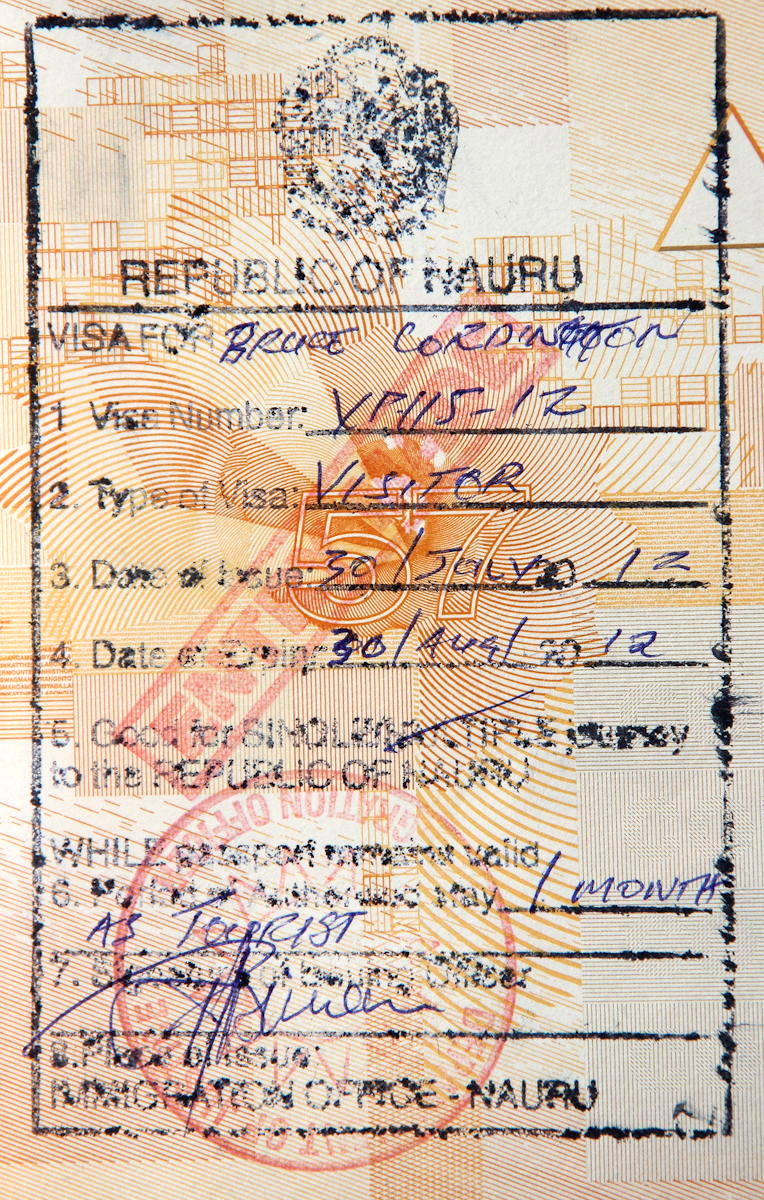 REPUBLIC OF NAURU
VISA FOR BRUCE
1 Visa Number: VPA115-12
2. Type of Visa: VISITOR
57
3. Date of Issue: 30/July 20 12
4. Date of Expiry 30/Aug/ 20 12
5. Good for SINGLE/MULTIPLE journey
to the REPUBLIC OF NAURU
WHILE passport remains valid
6. Period of Authorised stay 1 MONTH
AS TOURIST
7. Signature of Issuing Officer
8. Place of Issue:
IMMIGRATION OFFICE - NAURU